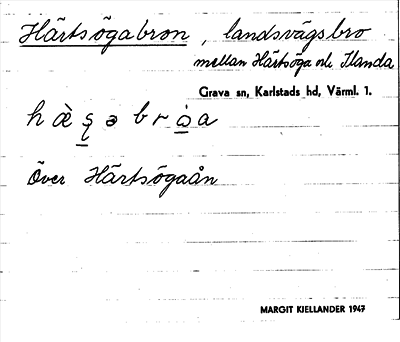 Härtsögabron, landsvägsbro
mellan Härtsöga och Ilanda
Grava sn, Karlstads hd, Värml. 1.
över Härtsögaån
MARGIT KIELLANDER 1947